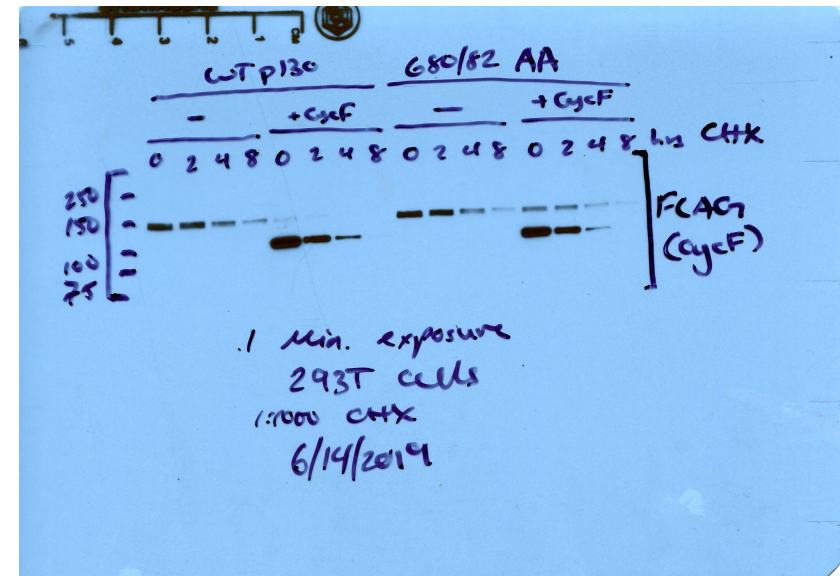 5 4 3 2 1 cm
WT p130 680/82 AA
- +CycF - +CycF
0 2 4 8 0 2 4 8 0 2 4 8 0 2 4 8 hrs CHX
250
150
100
75
FLAG
(CycF)
1 Min. exposure
293T cells
1:1000 CHX
6/14/2019